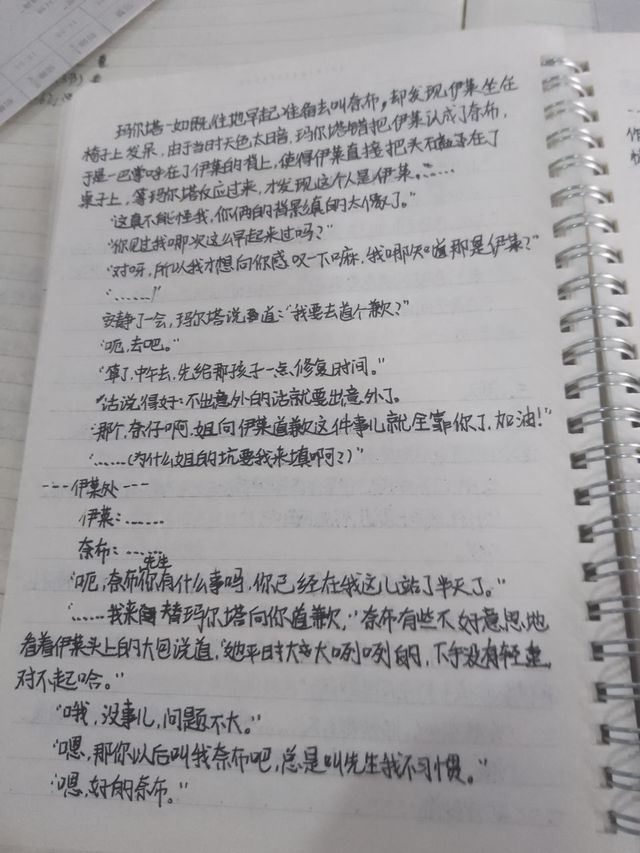 玛尔塔一如既往地早起准备去叫奈布，却发现伊莱坐在
椅子上发呆，由于当时天色太暗，玛尔塔错把伊莱认成了奈布，
于是一巴掌呼在了伊莱的背上，使得伊莱直接把头磕在了
桌子上，等玛尔塔反应过来，才发现这个人是伊莱。……
“这真不能怪我，你俩的背景真的太像了。”
“你见过我哪次这么早起来过吗？”
“对呀，所以我才想向你感叹一下嘛，我哪知道那是伊莱？”
“……！”
安静了一会，玛尔塔说道：“我要去道个歉？”
“呃，去吧。”
“算了，中午去，先给那孩子一点修复时间。”
“话说得好：不出意外的话就要出意外了。
“那个，奈仔啊，姐向伊莱道歉这件事儿就全靠你了，加油！”
“……（为什么姐的坑要我来填啊？）”
---伊莱处---
伊莱：……
奈布：……
先生
“呃，奈布你有什么事吗，你已经在我这儿站了半天了。”
“……我来替玛尔塔向你道歉，”奈布有些不好意思地
看着伊莱头上的大包说道，“她平时大大咧咧的，下手没有轻重，
对不起哈。”
“哦，没事儿，问题不大。”
“嗯，那你以后叫我奈布吧，总是叫先生我不习惯。”
“嗯，好的奈布。”